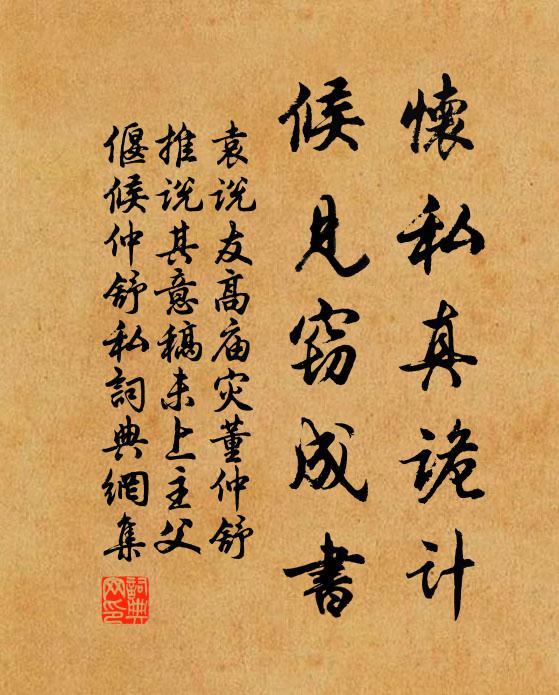 懷私真詭計
候見竊成書
袁说友高庙灾董仲舒
推说其意稿未上主父
偃候仲舒私詞典網集
詞典網印